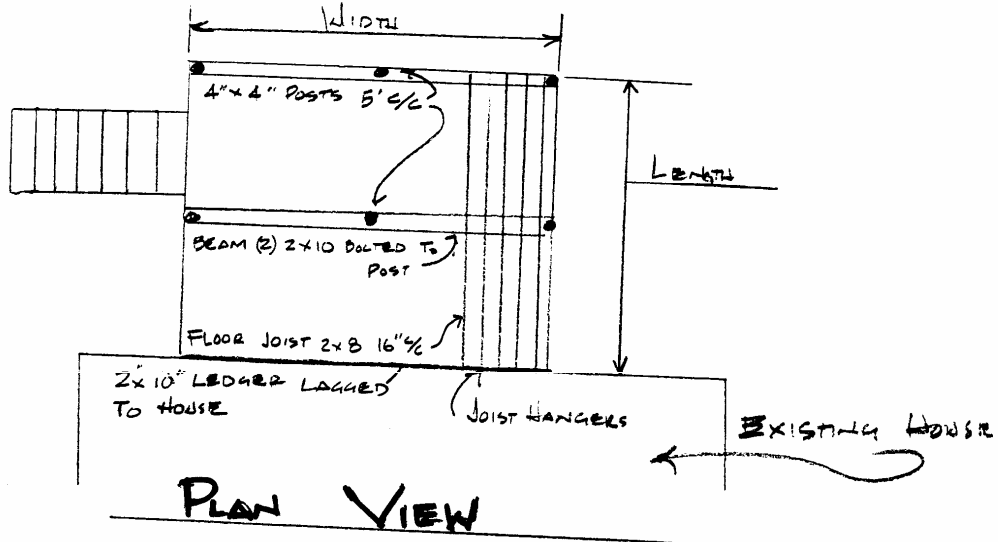 WIDTH
4"x4" POSTS 5' C/C
LENGTH
BEAM (2) 2x10 BOLTED TO
POST
FLOOR JOIST 2x8 16" C/C
2"x10" LEDGER LAGGED
TO HOUSE
JOIST HANGERS
EXISTING HOUSE
PLAN VIEW